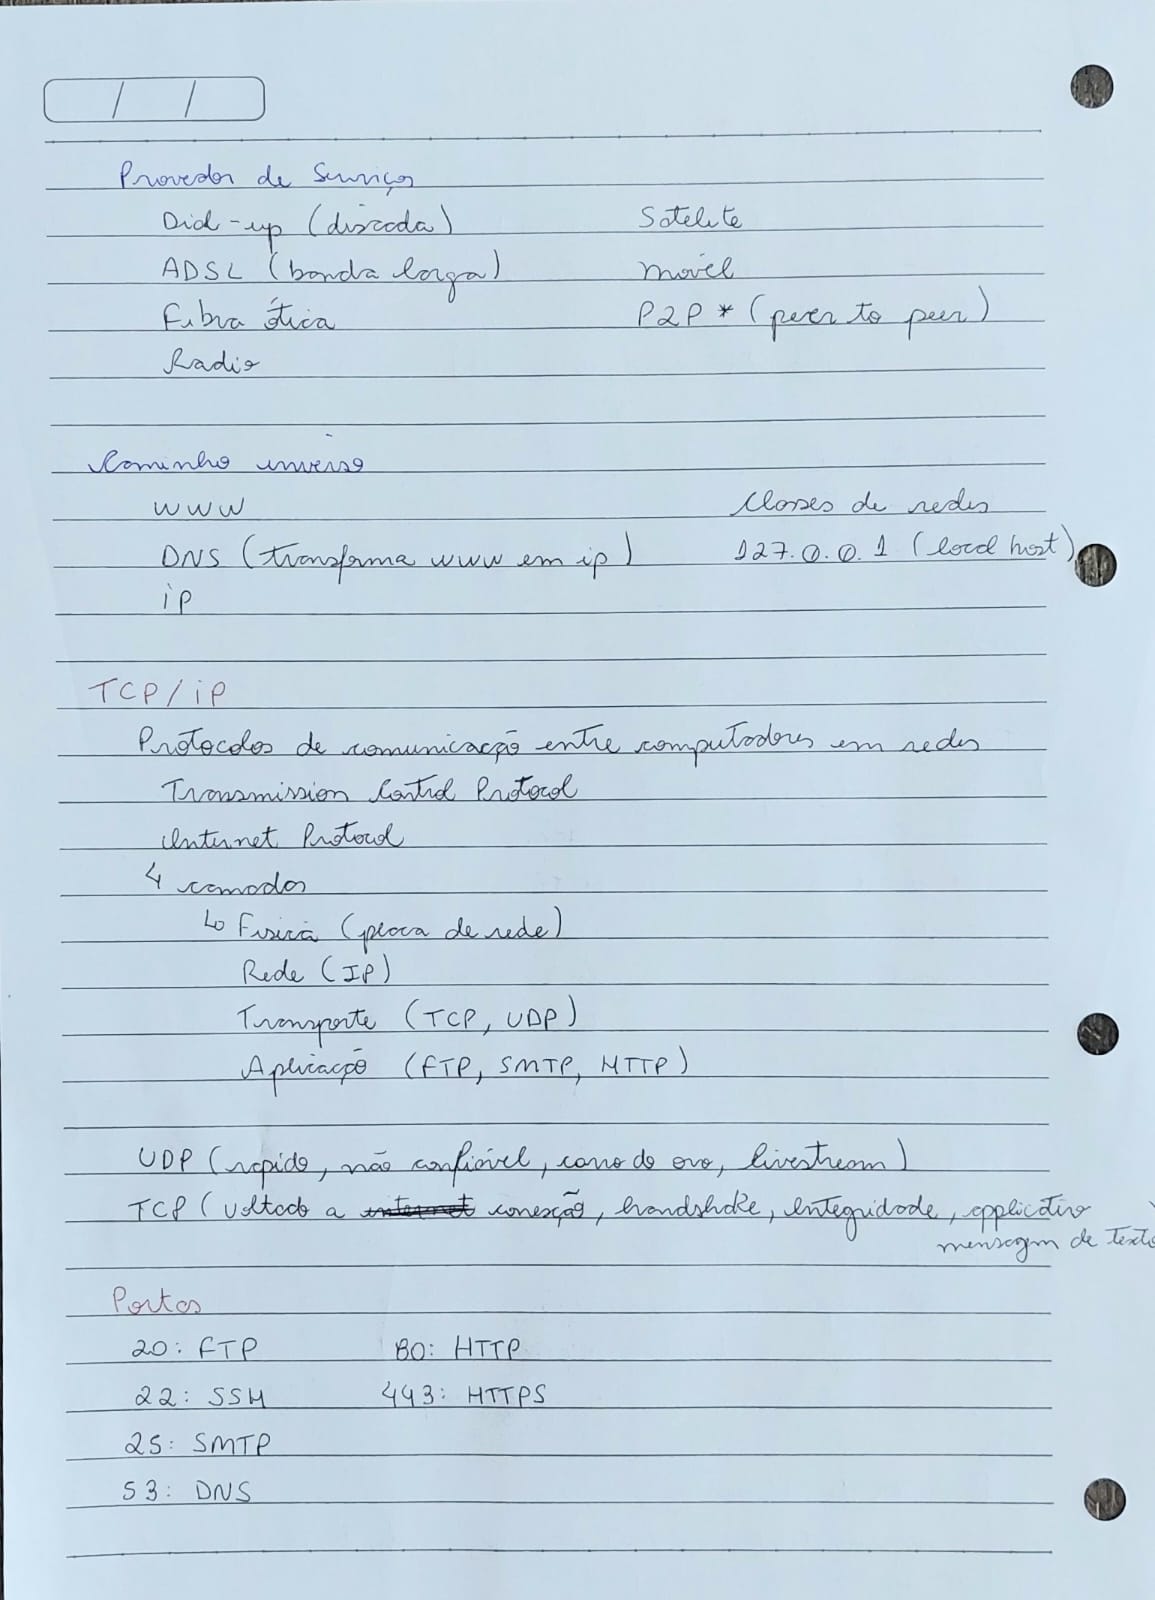 Provedor de Serviços
Dial-up (discada)
ADSL (banda larga)
Fibra ótica
Radio
Satelite
movél
P2P * (peer to peer)
Caminho inverso
WWW
DNS (transforma www em ip)
ip
Classes de redes
127.0.0.1 (local host)
TCP/iP
Protocolos de comunicação entre computadores em redes
Transmission Control Protocol
Internet Protocol
4 camadas
↳ Fisica (placa de rede)
Rede (IP)
Transporte (TCP, UDP)
Aplicação (FTP, SMTP, HTTP)
UDP (rapido, não confiável, carro do ovo, livestream)
TCP (voltado a internet conexção, handshake, integridade, applicativo
mensagem de texto
Portas
20: FTP
22: SSH
25: SMTP
53: DNS
80: HTTP
443: HTTPS